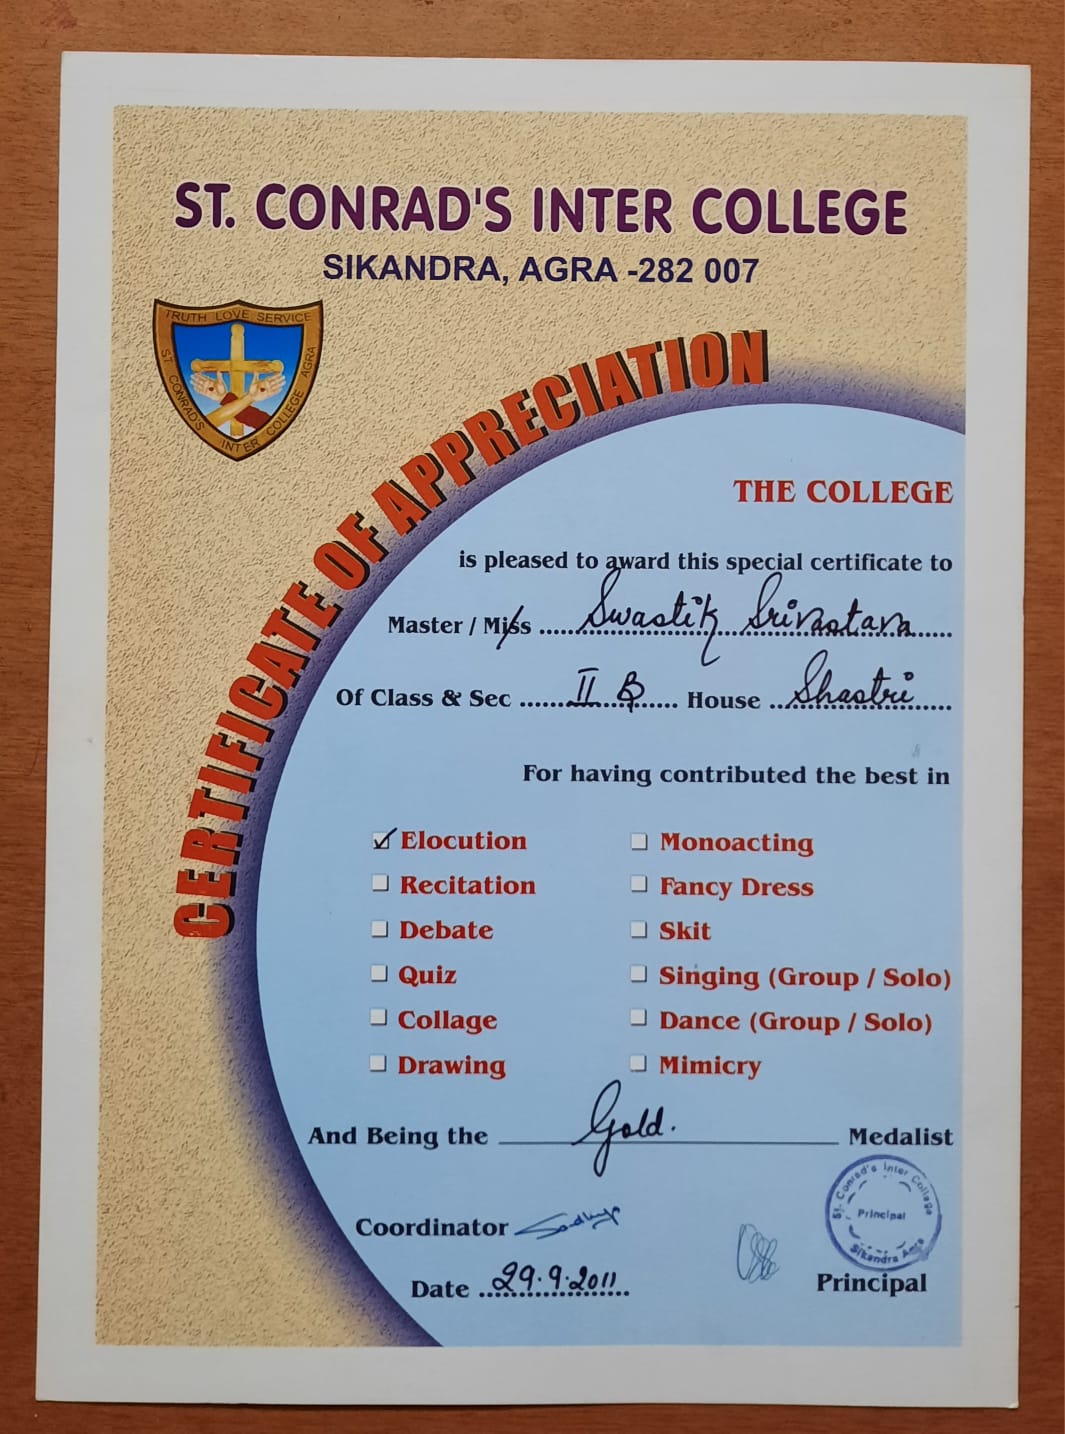 ST. CONRAD'S INTER COLLEGE
SIKANDRA, AGRA -282 007
TRUTH LOVE SERVICE
ST CONRAD'S INTER COLLEGE AGRA
CERTIFICATE OF APPRECIATION
THE COLLEGE
is pleased to award this special certificate to
Master / Miss Swastik Srivastava
Of Class & Sec II B House Shastri
For having contributed the best in
Elocution
Recitation
Debate
Quiz
Collage
Drawing
Monoacting
Fancy Dress
Skit
Singing (Group / Solo)
Dance (Group / Solo)
Mimicry
And Being the Gold. Medalist
St. Conrad's Inter College
Principal
Sikandra Agra
Coordinator
Date 29.9.2011
Principal